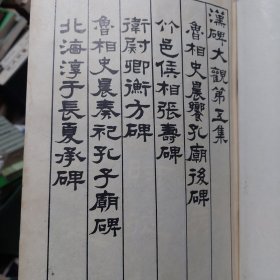 漢碑大觀第五集
魯相史晨饗孔廟後碑
竹邑侯相張壽碑
衛尉卿衡方碑
魯相史晨奏祀孔子廟碑
北海淳于長夏承碑